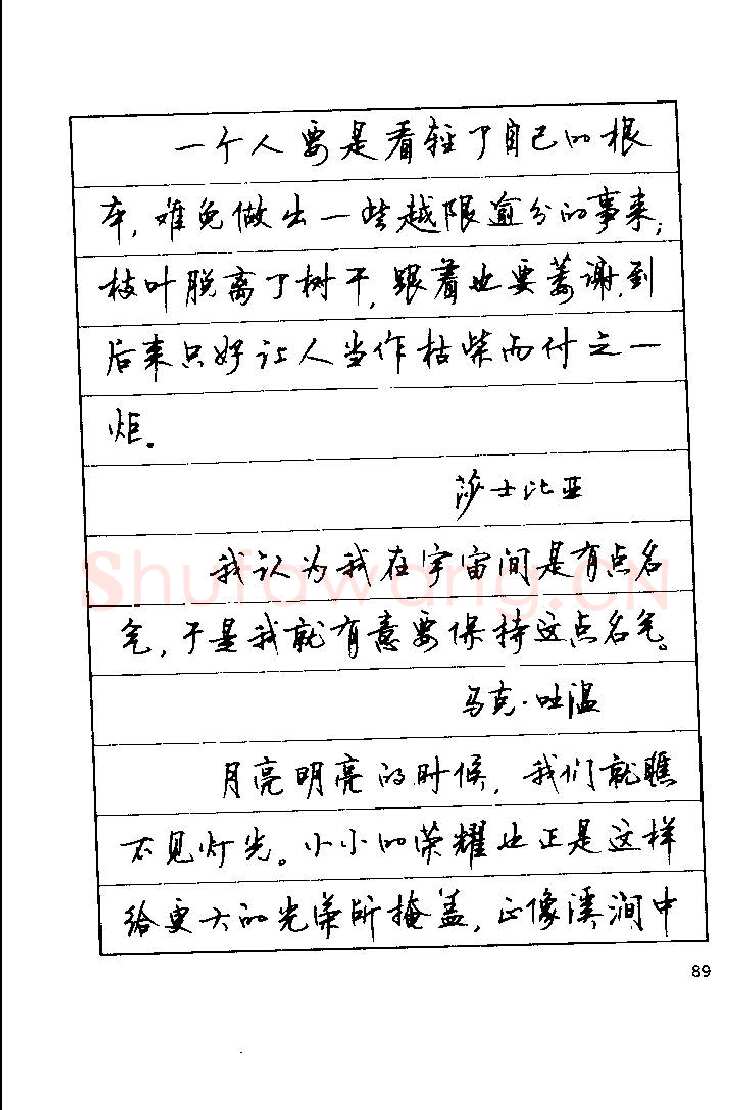 一个人要是看轻了自己的根
本，难免做出一些越限逾分的事来；
枝叶脱离了树干，跟着也要萎谢，到
后来只好让人当作枯柴而付之一
炬。
莎士比亚
我认为我在宇宙间是有点名
气，于是我就有意要保持这点名气。
马克·吐温
月亮明亮的时候，我们就瞧
不见灯光。小小的荣耀也正是这样
给更大的光荣所掩盖，正像溪涧中
Shufawang.CN
89